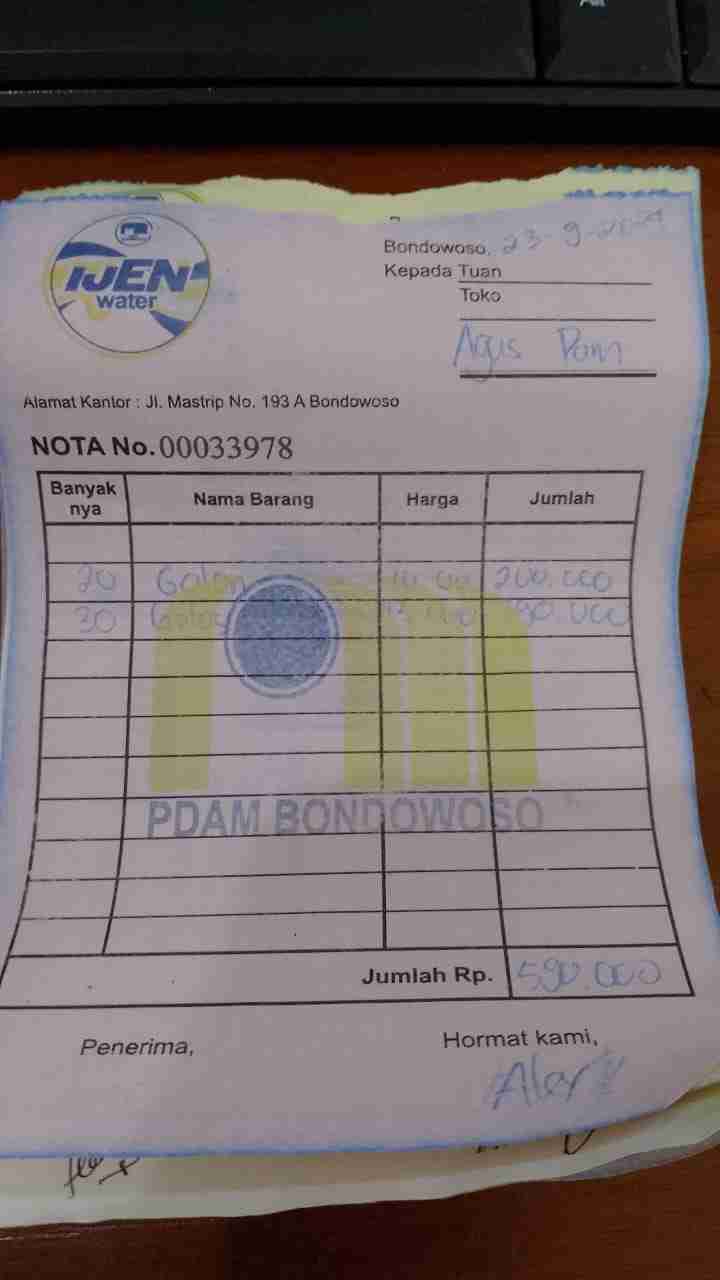 IJEN
water
Bondowoso, 23-9-2024
Kepada Tuan
Toko
Agus Pam
Alamat Kantor : Jl. Mastrip No. 193 A Bondowoso
NOTA No. 00033978
Banyak nya Nama Barang Harga Jumlah
20 Galon 200.000
30 Galon
PDAM BONDOWOSO
Jumlah Rp. 590.000
Penerima, Hormat kami,